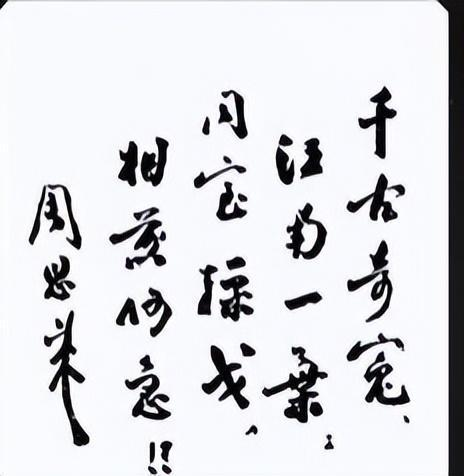 千古奇冤、
江南一葉；
同室操戈，
相煎何急!!
周恩来